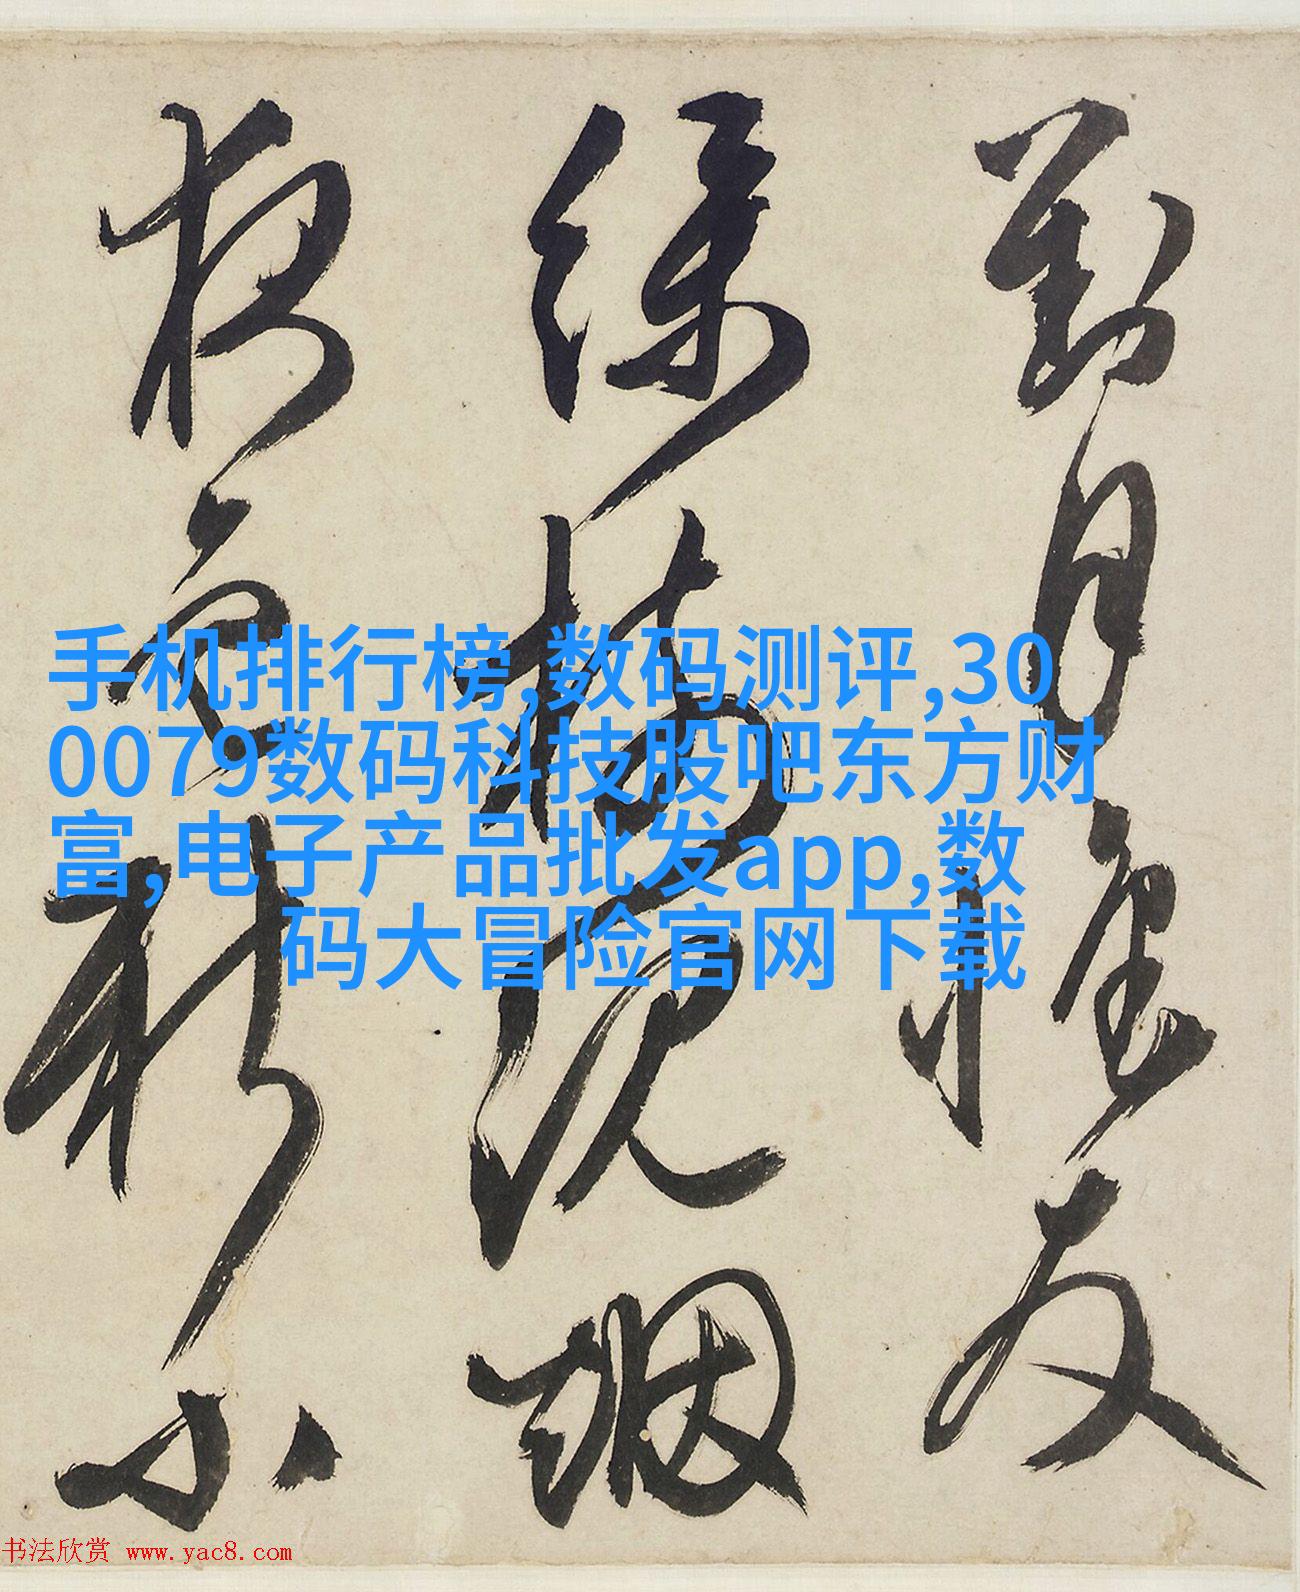 對月懷友
綠樹沉烟
夜新小
手机排行榜,数码测评,30
0079数码科技股吧东方财
富,电子产品批发app,数
码大冒险官网下载
书法欣赏 www.yac8.com